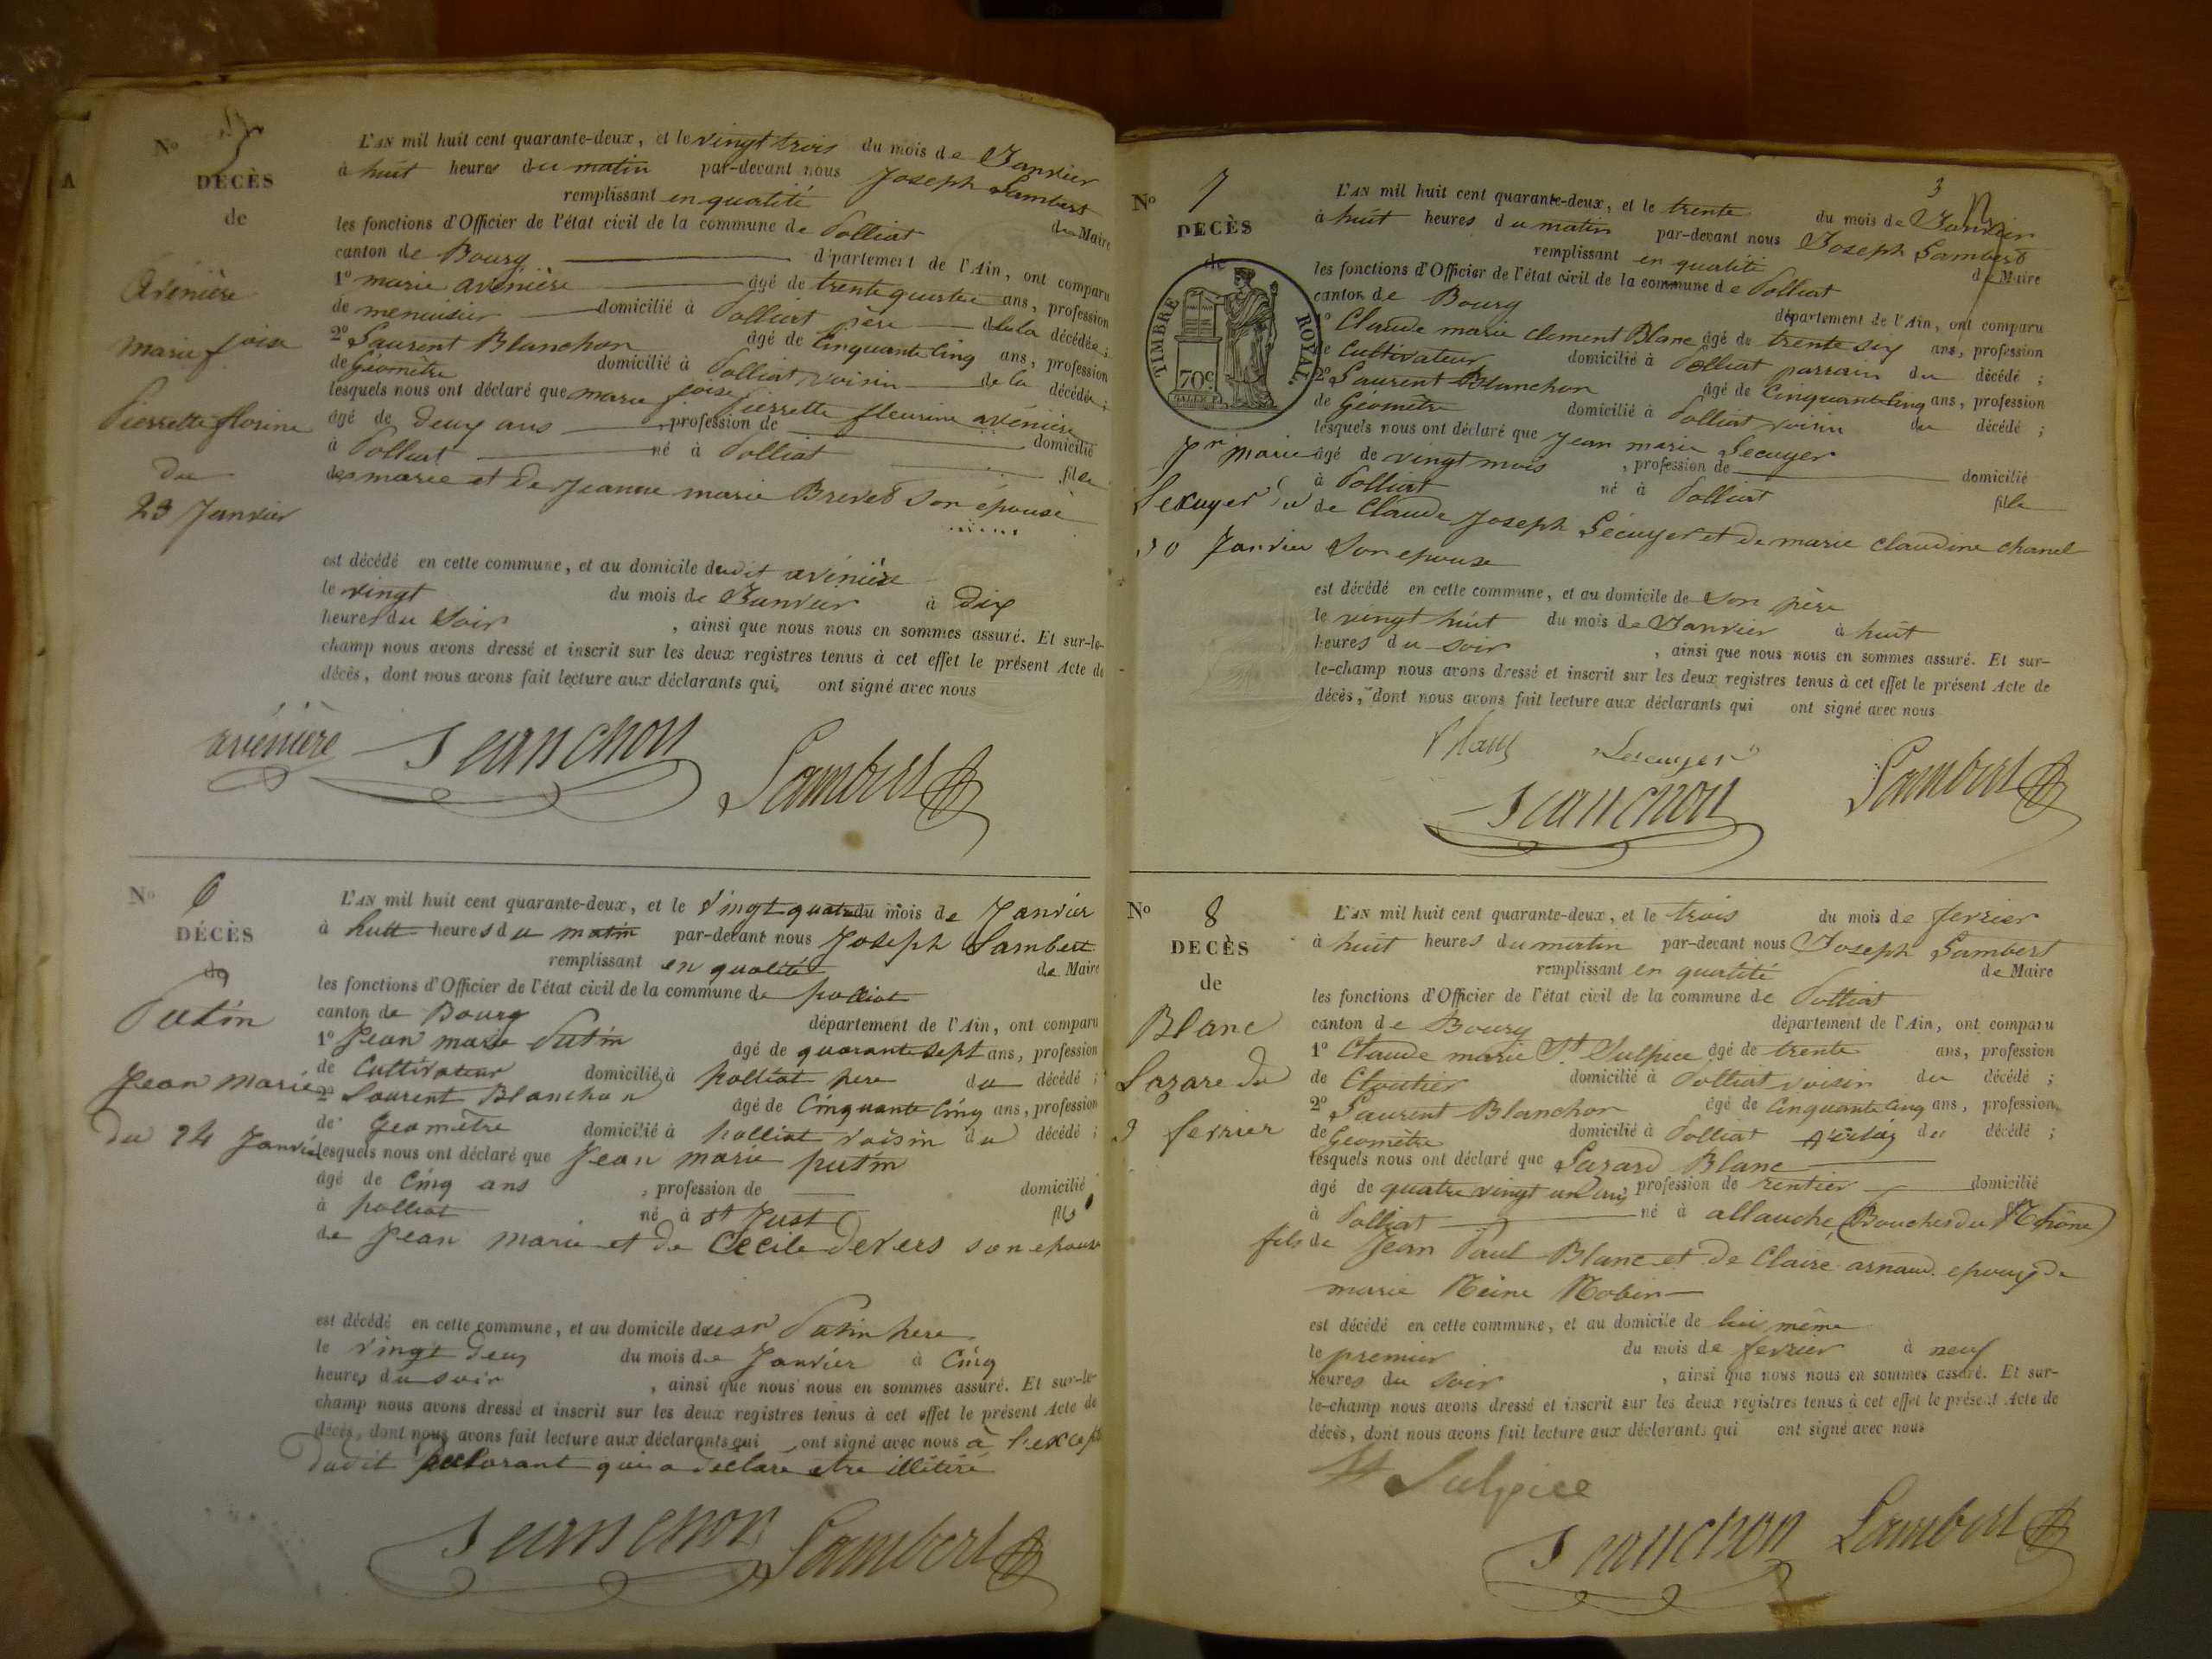 A
N° 5
DÉCÈS
de
Avenière
marie foise
Pierrette florine
du
23 Janvier
L'AN mil huit cent quarante-deux, et le vingt trois du mois de Janvier
à huit heures du matin par-devant nous Joseph Lambert
remplissant en qualité de Maire
les fonctions d'Officier de l'état civil de la commune de Polliat
canton de Bourg département de l'Ain, ont comparu
1° marie avenière âgé de trente quatre ans, profession
de menuisier domicilié à Polliat père de la décédée;
2° Laurent Blanchon âgé de Cinquante Cinq ans, profession
de Géomètre domicilié à Polliat voisin de la décédée;
lesquels nous ont déclaré que marie foise pierrette fleurine avenière
âgé de deux ans profession de domicilié
à Polliat né à Polliat fille
de marie et de Jeanne marie Brevet son épouse
est décédé en cette commune, et au domicile dudit avenière
le vingt du mois de Janvier à dix
heures du Soir, ainsi que nous nous en sommes assuré. Et sur-le-
champ nous avons dressé et inscrit sur les deux registres tenus à cet effet le présent Acte de
décès, dont nous avons fait lecture aux déclarants qui ont signé avec nous
avénière Blanchon Lambert
N° 6
DÉCÈS
de
Putin
Jean marie
du 24 Janvier
L'AN mil huit cent quarante-deux, et le Vingt quatre du mois de Janvier
à huit heures du matin par-devant nous Joseph Lambert
remplissant en qualité de Maire
les fonctions d'Officier de l'état civil de la commune de polliat
canton de Bourg département de l'Ain, ont comparu
1° Jean marie Putin âgé de quarante sept ans, profession
de Cultivateur domicilié à polliat pere du décédé;
2° Laurent Blanchon âgé de Cinquante Cinq ans, profession
de Geomètre domicilié à polliat voisin du décédé;
lesquels nous ont déclaré que Jean marie putin
âgé de Cinq ans, profession de domicilié
à polliat né à st Just fils
de Jean marie et de Cécile devers son epouse
est décédé en cette commune, et au domicile de Putin pere
le vingt deux du mois de Janvier à Cinq
heures du soir, ainsi que nous nous en sommes assuré. Et sur-le-
champ nous avons dressé et inscrit sur les deux registres tenus à cet effet le présent Acte de
décès, dont nous avons fait lecture aux déclarants qui ont signé avec nous à l'except
dudit declarant qui a déclaré etre illitiré
Blanchon Lambert
3
N° 7
DECÈS
de
TIMBRE ROYAL.
70c
Jn marie
Lecuyer du
30 Janvier
L'AN mil huit cent quarante-deux, et le trente du mois de Janvier
à huit heures du matin par-devant nous Joseph Lambert
remplissant en qualité de Maire
les fonctions d'Officier de l'état civil de la commune de Polliat
canton de Bourg département de l'Ain, ont comparu
1° Claude marie clement Blanc âgé de trente six ans, profession
de Cultivateur domicilié à Polliat parrain du décédé;
2° Laurent Blanchon âgé de Cinquante Cinq ans, profession
de Géomètre domicilié à Polliat voisin du décédé;
lesquels nous ont déclaré que Jean marie Lecuyer
âgé de vingt mois, profession de domicilié
à Polliat né à Polliat fils
de Claude Joseph Lécuyer et de marie claudine chanel
Son epouse
est décédé en cette commune, et au domicile de Son père
le vingt huit du mois de Janvier à huit
heures du soir, ainsi que nous nous en sommes assuré. Et sur-
le-champ nous avons dressé et inscrit sur les deux registres tenus à cet effet le présent Acte de
décès, dont nous avons fait lecture aux déclarants qui ont signé avec nous
Blanc Lecuyer
Blanchon Lambert
N° 8
DECÈS
de
Blanc
Lazare du
3 fevrier
L'AN mil huit cent quarante-deux, et le trois du mois de fevrier
à huit heures du matin par-devant nous Joseph Lambert
remplissant en qualité de Maire
les fonctions d'Officier de l'état civil de la commune de Polliat
canton de Bourg département de l'Ain, ont comparu
1° Claude marie St Sulpice âgé de trente ans, profession
de Cloutier domicilié à Polliat voisin du décédé;
2° Laurent Blanchon âgé de Cinquante Cinq ans, profession
de Géomètre domicilié à Polliat du décédé;
lesquels nous ont déclaré que Lazard Blanc
âgé de quatre vingt un ans, profession de rentier domicilié
à Polliat né à allauche (Bouches du Rhône)
fils de Jean Paul Blanc et de Claire arnaud epoux de
marie Reine Robin
est décédé en cette commune, et au domicile de lui même
le premier du mois de fevrier à neuf
heures du Soir, ainsi que nous nous en sommes assuré. Et sur-
le-champ nous avons dressé et inscrit sur les deux registres tenus à cet effet le présent Acte de
décès, dont nous avons fait lecture aux déclarants qui ont signé avec nous
St Sulpice
Blanchon Lambert